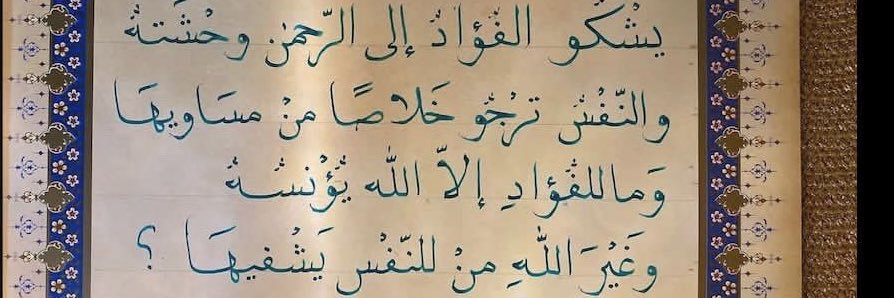 يشْكُو الفُؤادُ إلى الرّحمنِ وحْشَتهُ
والنّفْسُ ترْجُو خَلاصًا منْ مسَاويهَا
وَما للفُؤادِ إلاّ الله يُؤنسُهُ
وغَيْرَ اللهِ منْ للنّفْسِ يَشْفيهَا ؟